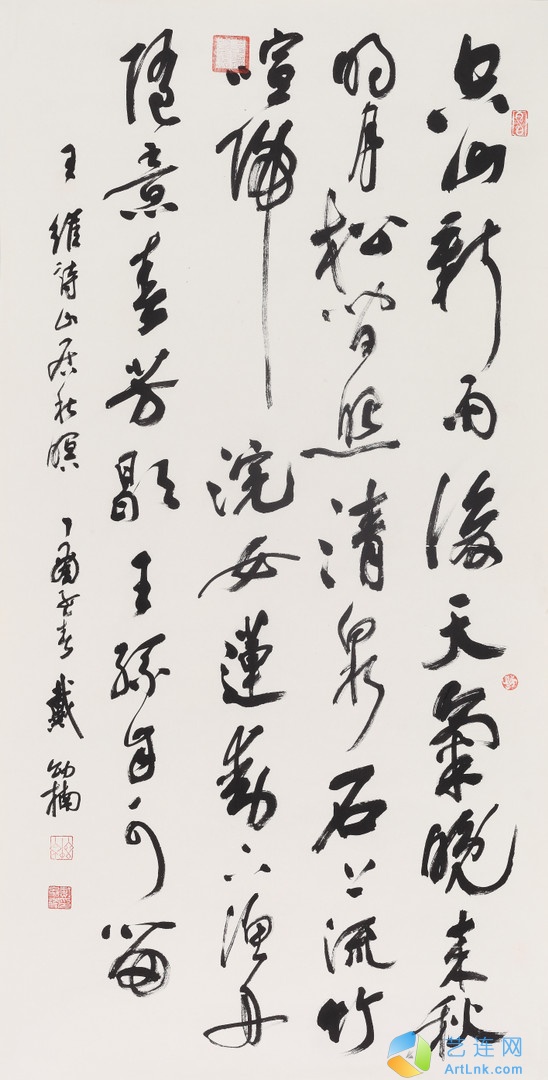 空山新雨後天氣晚來秋
明月松間照清泉石上流竹
喧歸浣女蓮動下漁舟
隨意春芳歇王孫自可留
王維詩山居秋暝 丁酉春 戴幼楠
艺连网
ArtLnk.com